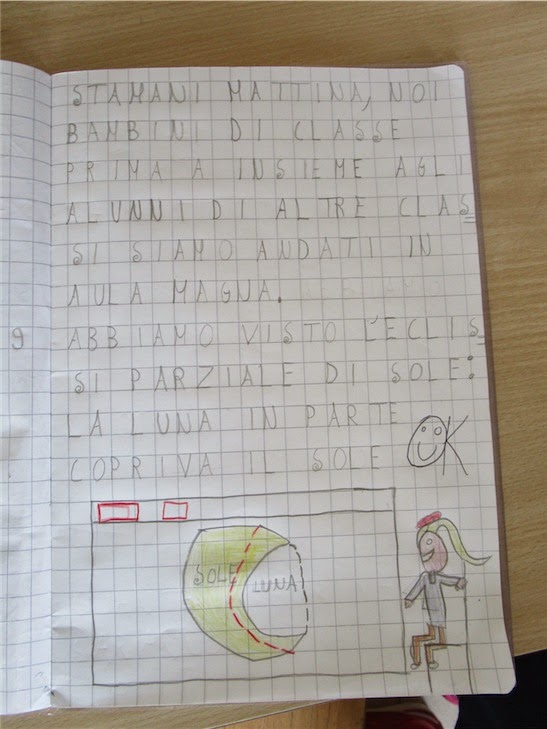 STAMANI MATTINA, NOI
BAMBINI DI CLASSE
PRIMA A INSIEME AGLI
ALUNNI DI ALTRE CLAS
SI SIAMO ANDATI IN
AULA MAGNA.
ABBIAMO VISTO L'ECLIS
SI PARZIALE DI SOLE:
LA LUNA IN PARTE
COPRIVA IL SOLE
OK
SOLE LUNA